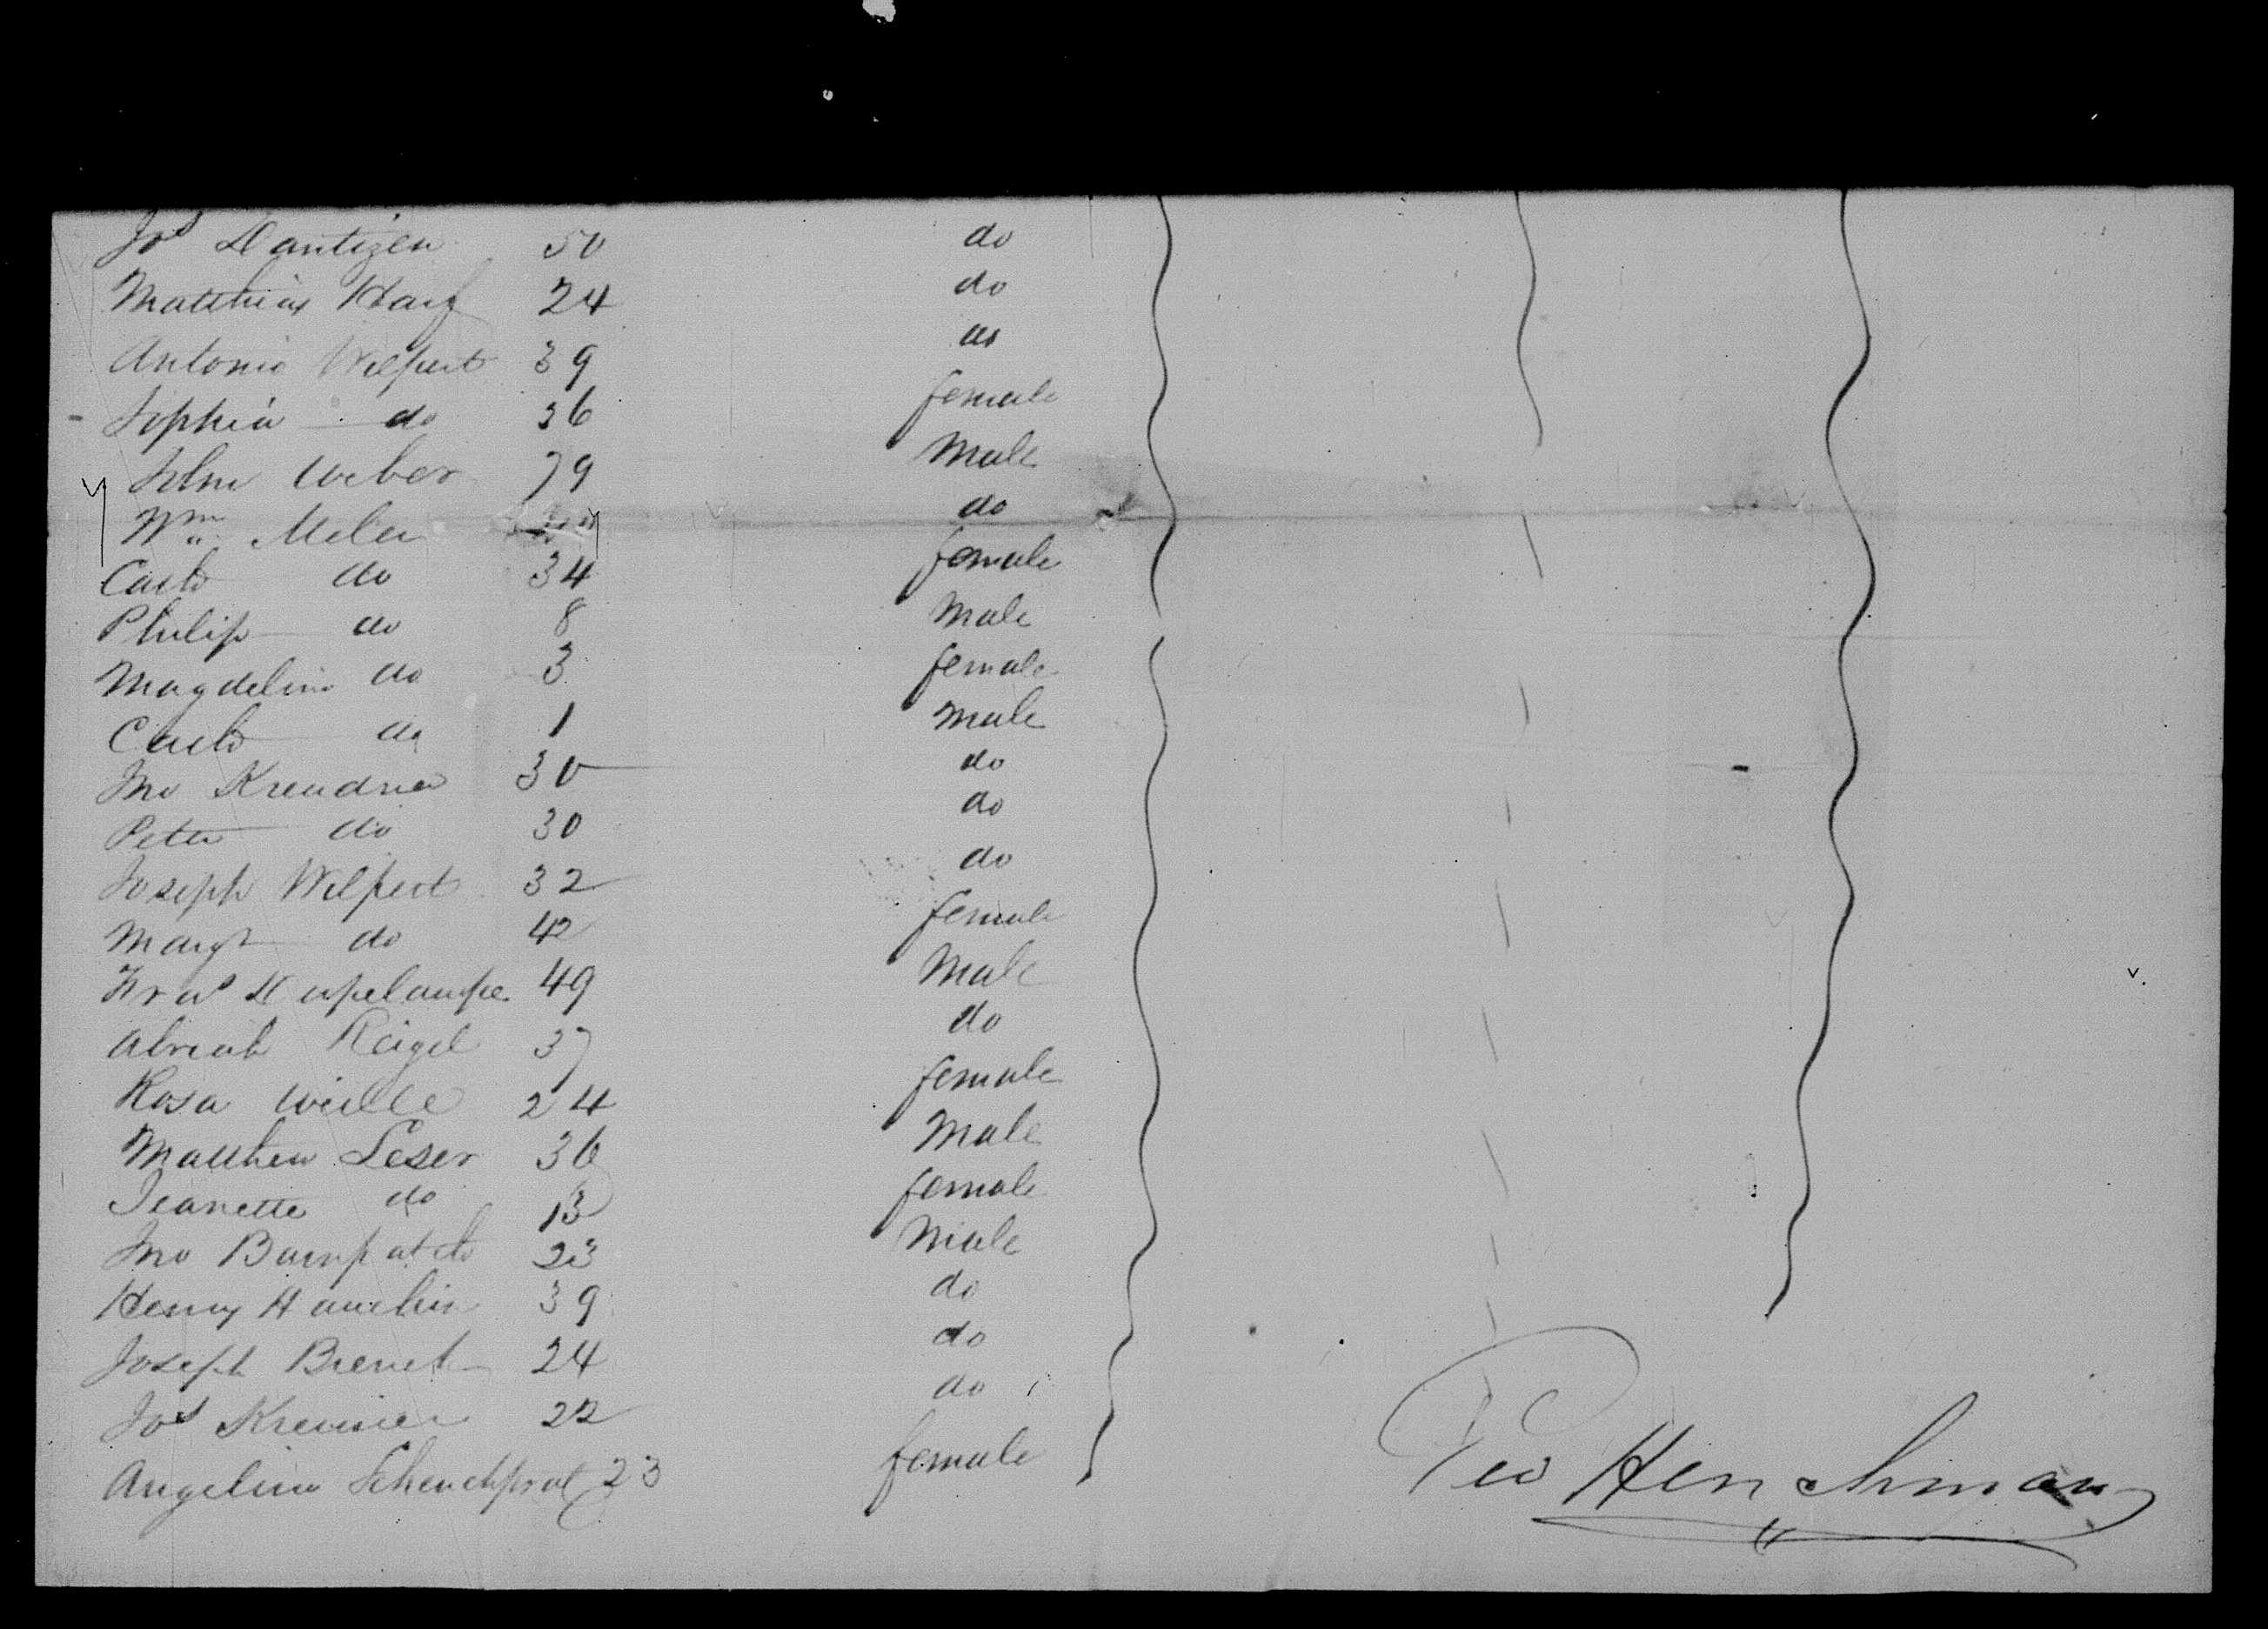 Jos Dantizen 50 do
Matthias Harf 24 do
Antonio Welpert 39 do
Sophia do 36 female
John Weber 79 Male
Wm Meler do
Cath do 34 female
Philip do 8 Male
Magdelina do 3 female
Cath do 1 male
Jno Kreudner 30 do
Peter do 30 do
Joseph Welpert 32 do
Margt do 42 female
Fras 49 Male
Abriah Reigel 37 do
Rosa Weille 24 female
Matthew Leser 36 Male
Jeanette do 13 female
Jno 23 Male
Henry 39 do
Joseph 24 do
Jos 22 do
Angelina 23 female
Geo Henchman